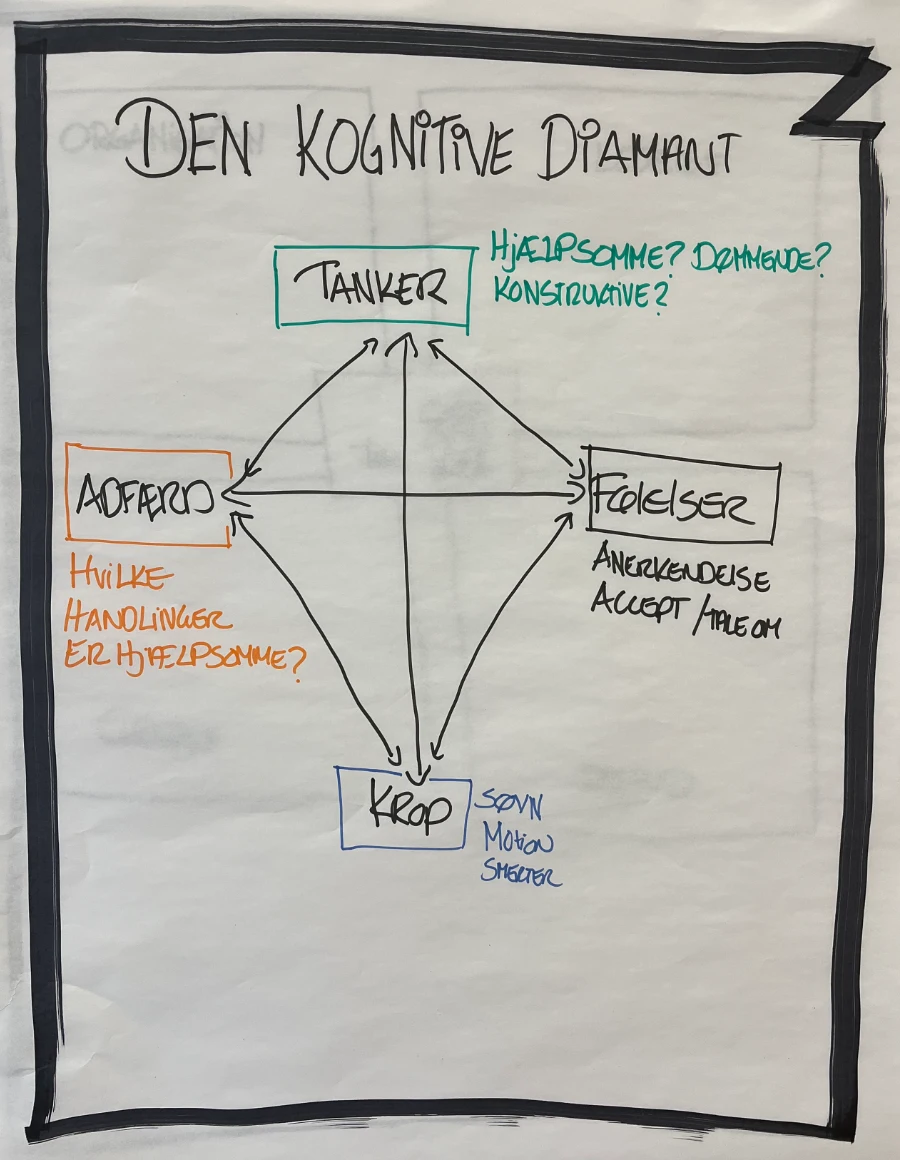 DEN KOGNITIVE DIAMANT
TANKER
HJÆLPSOMME? DØMMENDE?
KONSTRUKTIVE?
ADFÆRD
HVILKE
HANDLINGER
ER HJÆLPSOMME?
FØLELSER
ANERKENDELSE
ACCEPT /TALE OM
KROP
SØVN
MOTION
SMERTER